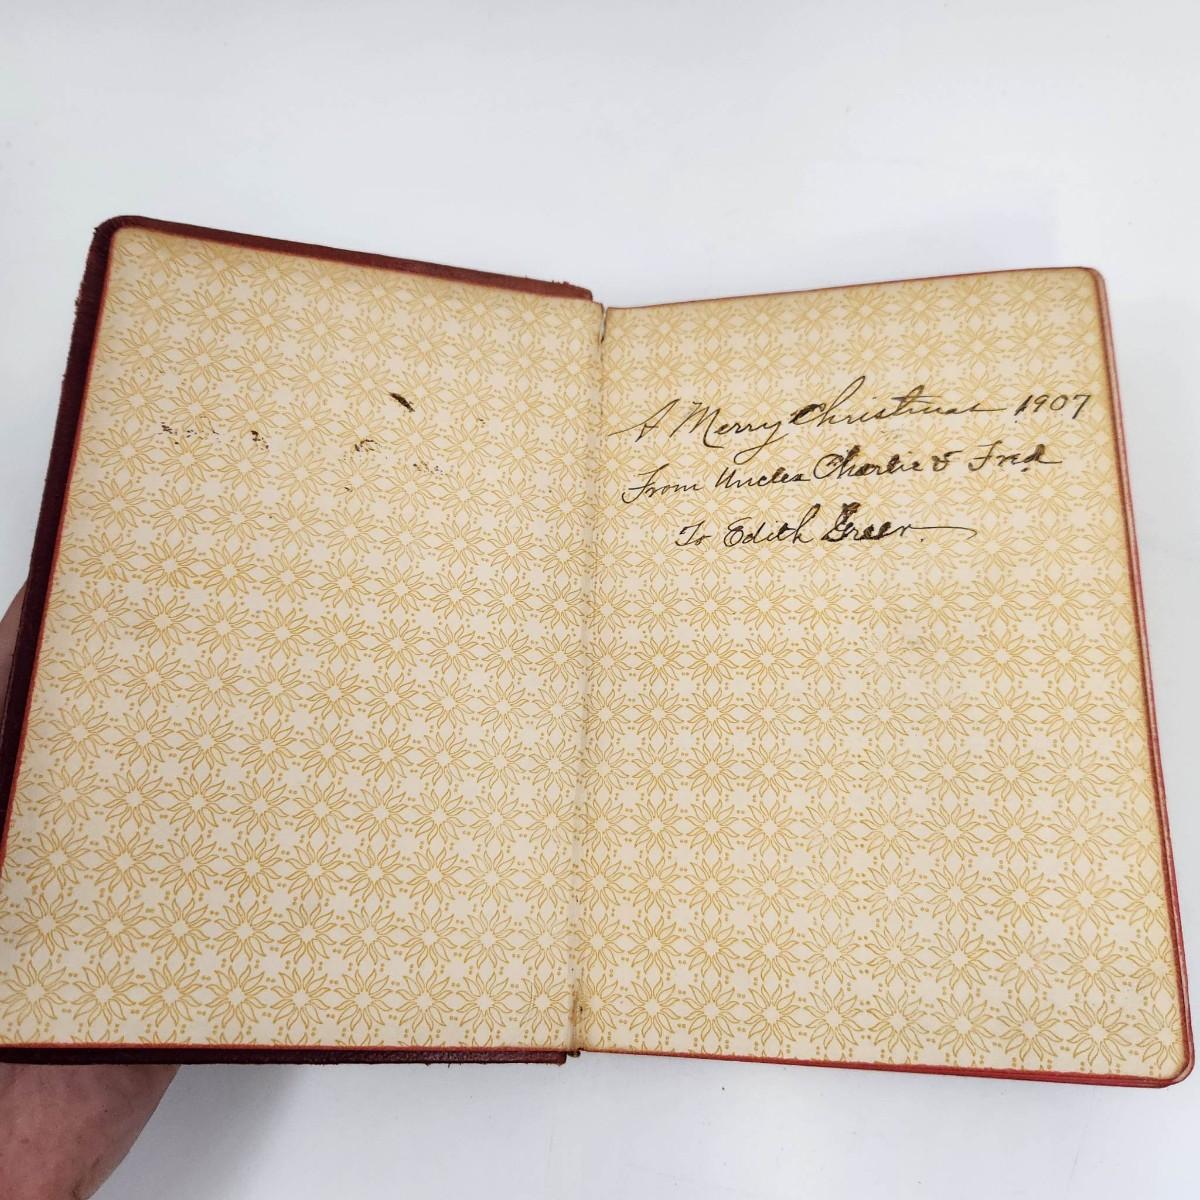 A Merry Christmas 1907
From Uncles Charlie & Fred
To Edith Green.